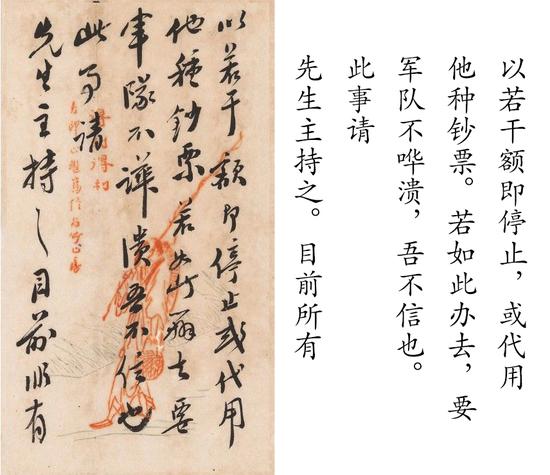 以若干額即停止或代用
他種鈔票若如此辦去要
軍隊不譁潰吾不信也
此事請
先生主持之目前所有
以若干额即停止，或代用
他种钞票。若如此办去，要
军队不哗溃，吾不信也。
此事请
先生主持之。目前所有